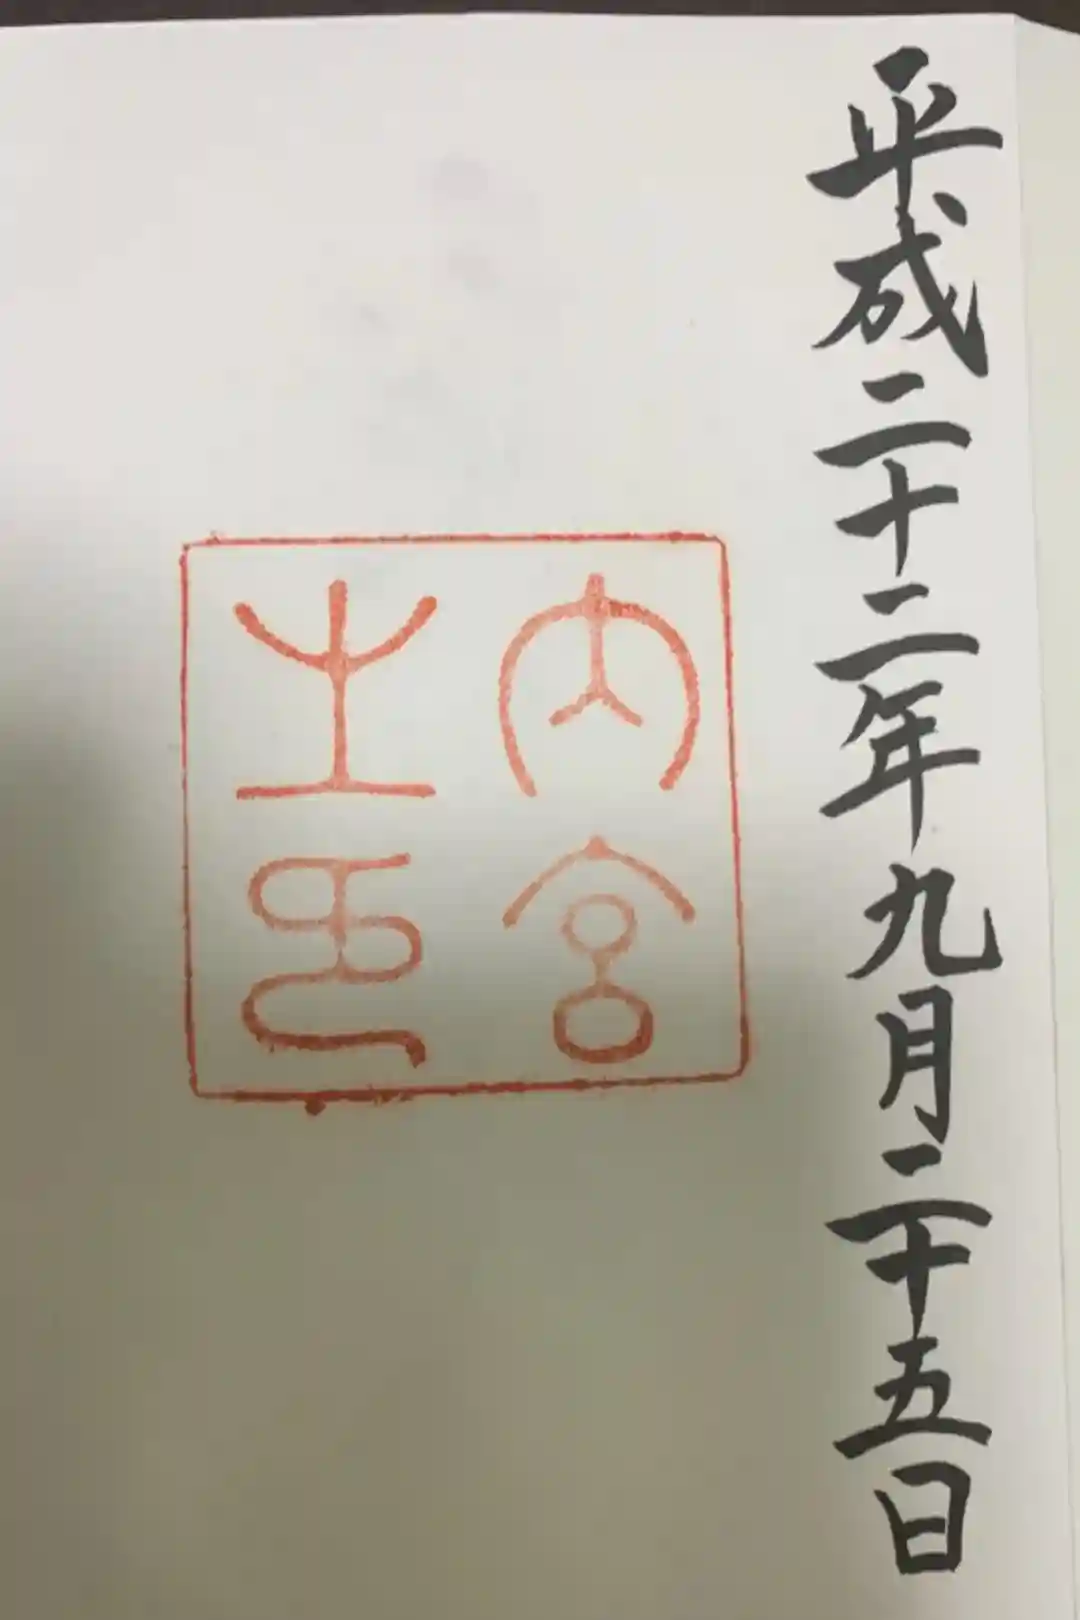 平成二十二年九月二十五日
内宮
之印